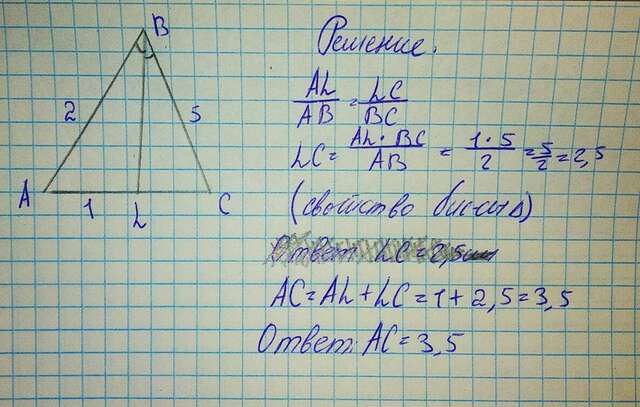 B
2
5
A
1
L
C
Решение.
AL/AB = LC/BC
LC = AL·BC/AB = 1·5/2 = 5/2 = 2,5
(свойство бис-сы Δ)
Ответ: LC = 2,5
AC = AL + LC = 1 + 2,5 = 3,5
Ответ: AC = 3,5